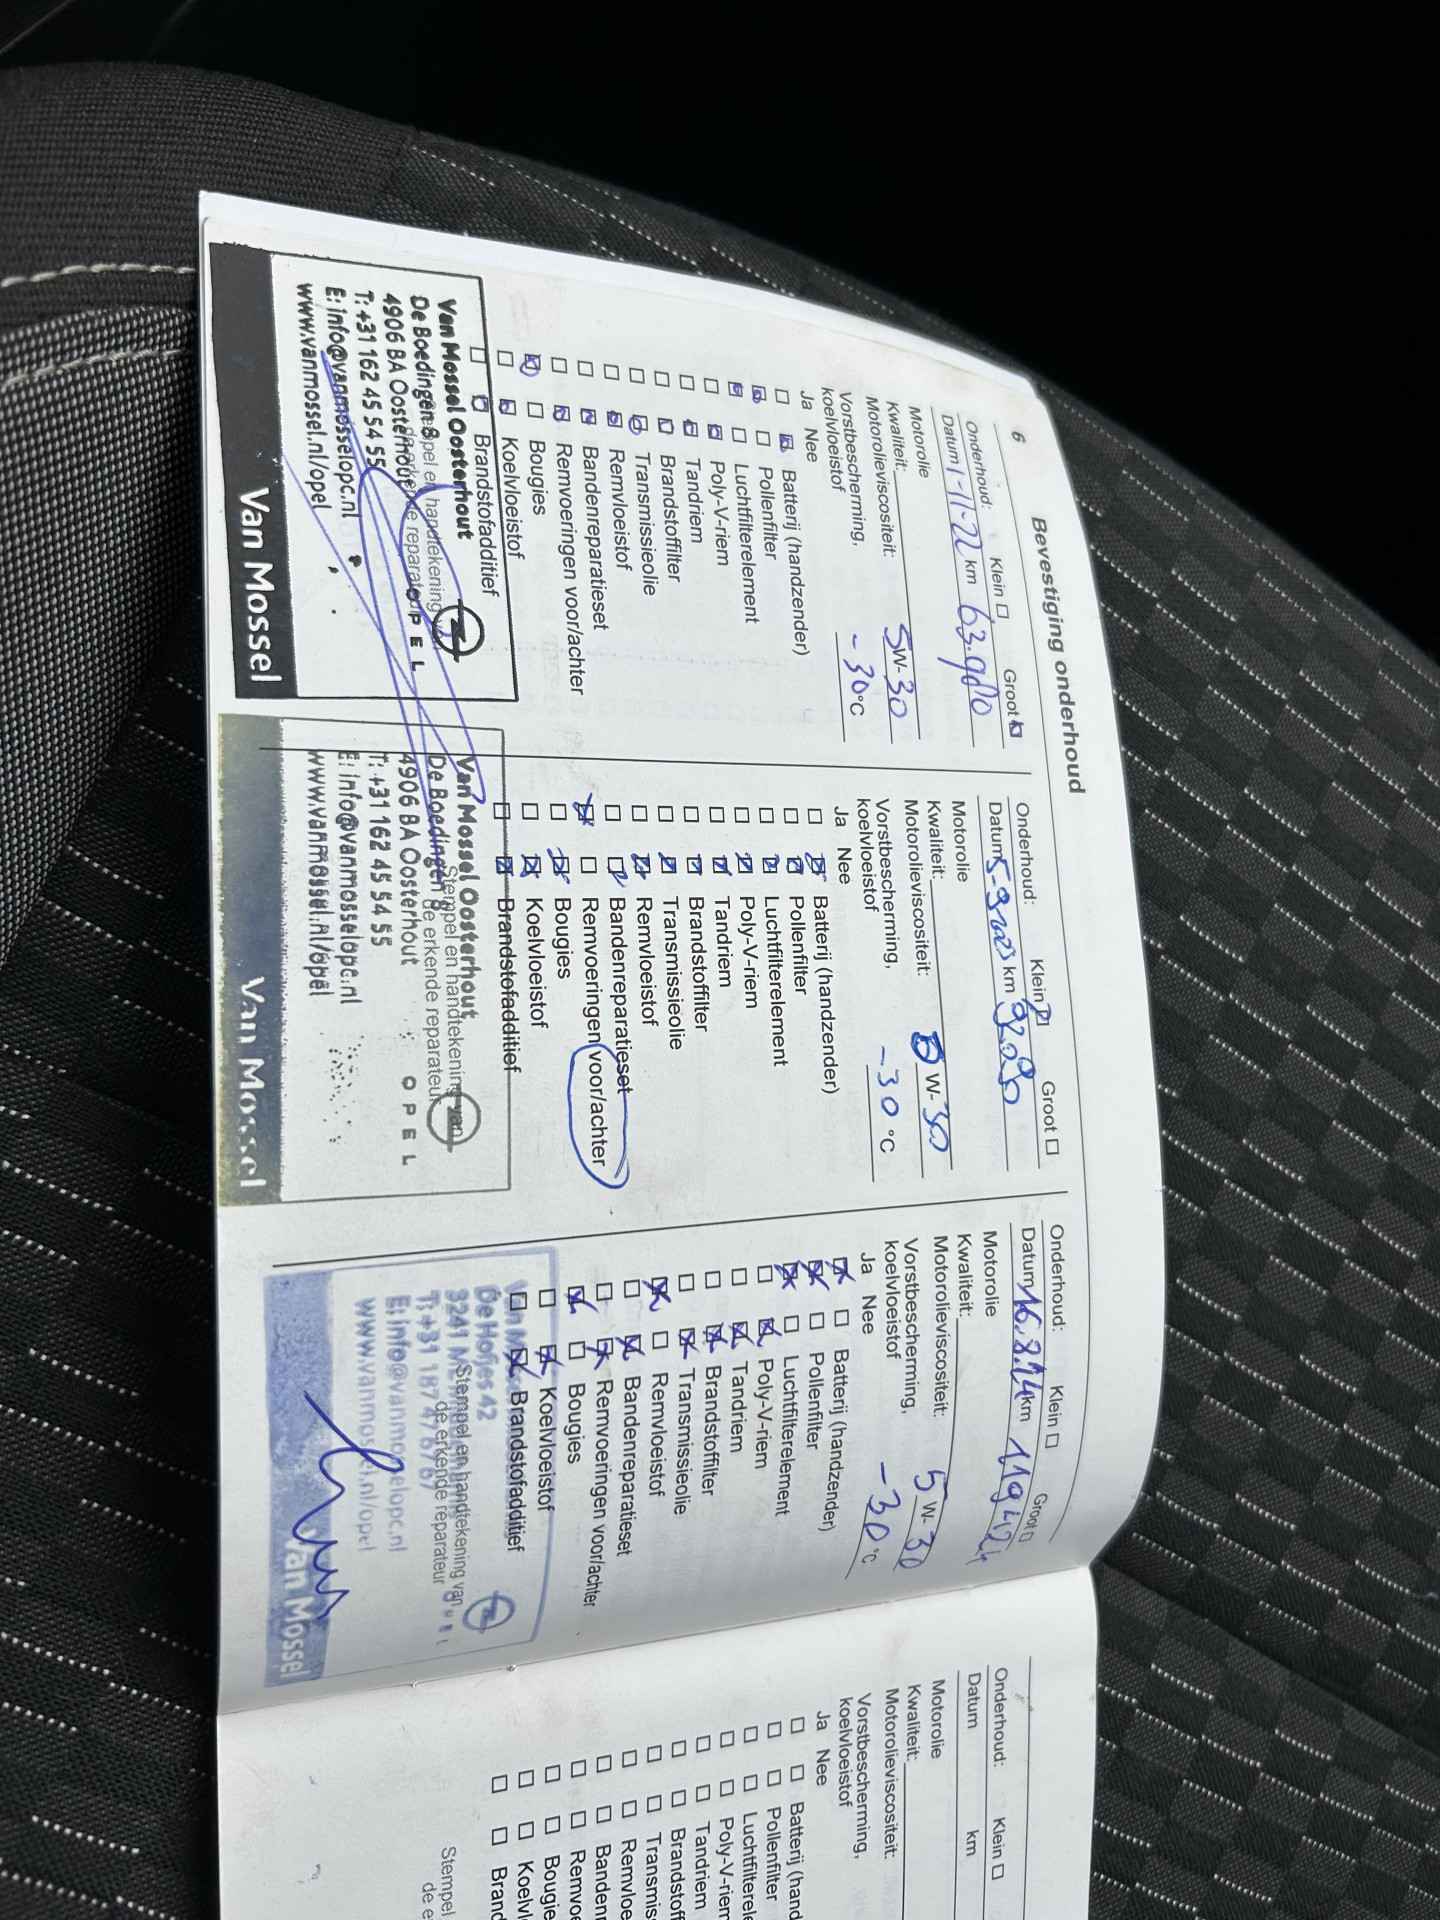 6
Bevestiging onderhoud
Onderhoud: Klein Groot
Datum 1-11-22 km
Motorolie
Kwaliteit:
Motorolieviscositeit: 5W-30
Vorstbescherming,
koelvloeistof -30°C
Ja Nee
Batterij (handzender)
Pollenfilter
Luchtfilterelement
Poly-V-riem
Tandriem
Brandstoffilter
Transmissieolie
Remvloeistof
Bandenreparatieset
Remvoeringen voor/achter
Bougies
Koelvloeistof
Brandstofadditief
Stempel en handtekening van
de erkende reparateur
Van Mossel Oosterhout
De Boedingen 8
4906 BA Oosterhout
T: +31 162 45 54 55
E: info@vanmosselopc.nl
www.vanmossel.nl/opel
OPEL
Van Mossel
Onderhoud: Klein Groot
Datum 5-9-2023 km
Motorolie
Kwaliteit:
Motorolieviscositeit: 0W-30
Vorstbescherming,
koelvloeistof -30 °C
Ja Nee
Batterij (handzender)
Pollenfilter
Luchtfilterelement
Poly-V-riem
Tandriem
Brandstoffilter
Transmissieolie
Remvloeistof
Bandenreparatieset
Remvoeringen voor/achter
Bougies
Koelvloeistof
Brandstofadditief
Stempel en handtekening van
de erkende reparateur
Van Mossel Oosterhout
De Boedingen 8
4906 BA Oosterhout
T: +31 162 45 54 55
E: info@vanmosselopc.nl
www.vanmossel.nl/opel
OPEL
Van Mossel
Onderhoud: Klein Groot
Datum 16.8.24 km 119424
Motorolie
Kwaliteit:
Motorolieviscositeit: 5W-30
Vorstbescherming,
koelvloeistof -30°C
Ja Nee
Batterij (handzender)
Pollenfilter
Luchtfilterelement
Poly-V-riem
Tandriem
Brandstoffilter
Transmissieolie
Remvloeistof
Bandenreparatieset
Remvoeringen voor/achter
Bougies
Koelvloeistof
Brandstofadditief
Stempel en handtekening van
de erkende reparateur
De Hofjes 42
3241
T: +31 187 47 67 67
E: info@vanmosselopc.nl
www.vanmossel.nl/opel
OPEL
Van Mossel
Onderhoud: Klein
Datum km
Motorolie
Kwaliteit:
Motorolieviscositeit:
Vorstbescherming,
koelvloeistof
Ja Nee
Batterij (hand
Pollenfilter
Luchtfiltere
Poly-V-riem
Tandriem
Brandstoff
Transmiss
Remvloe
Banden
Remvo
Bougie
Koelvl
Brand
Stempel
de e